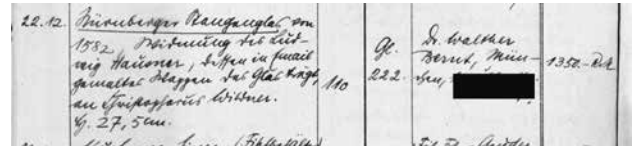 22.12. Nürnberger Stangenglas von
1582, Widmung des Lud-
wig Hausner, dessen in Email
gemaltes Wappen das Glas trägt,
an Christophorus Wildner.
H. 27,5 cm.
110
Gl.
222.
Dr. Walther
Bernt, Mün-
chen,
1350.- RM